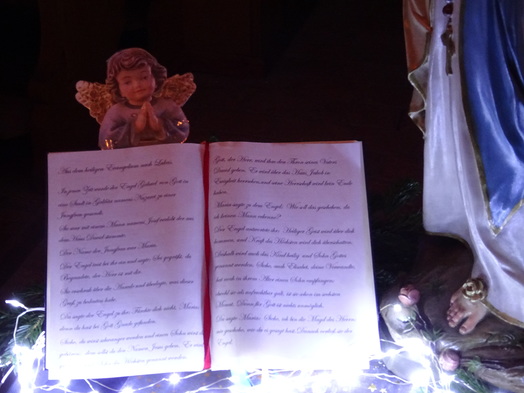 Aus dem heiligen Evangelium nach Lukas.
In jener Zeit wurde der Engel Gabriel von Gott in
eine Stadt in Galiläa namens Nazaret zu einer
Jungfrau gesandt.
Sie war mit einem Mann namens Josef verlobt, der aus
dem Haus David stammte.
Der Name der Jungfrau war Maria.
Der Engel trat bei ihr ein und sagte: Sei gegrüßt, du
Begnadete, der Herr ist mit dir.
Sie erschrak über die Anrede und überlegte, was dieser
Gruß zu bedeuten habe.
Da sagte der Engel zu ihr: Fürchte dich nicht, Maria,
denn du hast bei Gott Gnade gefunden.
Siehe, du wirst schwanger werden und einen Sohn wirst du
gebären; dem sollst du den Namen Jesus geben. Er wird
Gott, der Herr, wird ihm den Thron seines Vaters
David geben. Er wird über das Haus Jakob in
Ewigkeit herrschen und seine Herrschaft wird kein Ende
haben.
Maria sagte zu dem Engel: Wie soll das geschehen, da
ich keinen Mann erkenne?
Der Engel antwortete ihr: Heiliger Geist wird über dich
kommen, und Kraft des Höchsten wird dich überschatten.
Deshalb wird auch das Kind heilig und Sohn Gottes
genannt werden. Siehe, auch Elisabet, deine Verwandte,
hat noch in ihrem Alter einen Sohn empfangen;
obwohl sie als unfruchtbar galt, ist sie schon im sechsten
Monat. Denn für Gott ist nichts unmöglich.
Da sagte Maria: Siehe, ich bin die Magd des Herrn;
mir geschehe, wie du es gesagt hast. Danach verließ sie der
Engel.